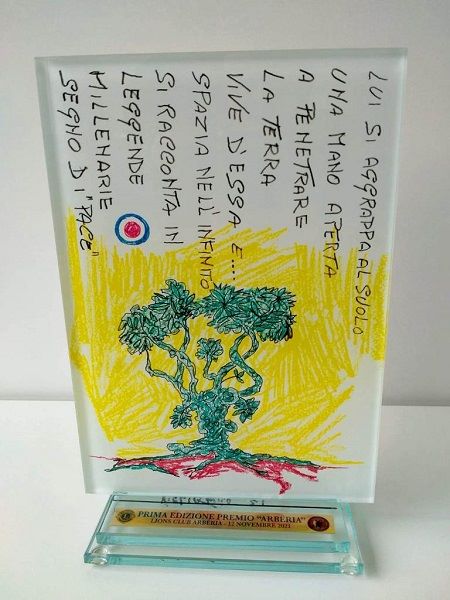 LUI SI AGGRAPPA AL SUOLO
UNA MANO APERTA
A PENETRARE
LA TERRA
VIVE D'ESSA E....
SPAZIA NELL'INFINITO
SI RACCONTA IN
LEGGENDE
MILLENARIE
SEGNO DI "PACE"
PRIMA EDIZIONE PREMIO "ARBËRIA"
LIONS CLUB ARBERIA - 12 NOVEMBRE 2021